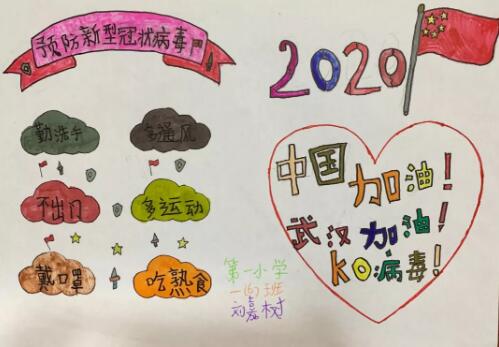 预防新型冠状病毒
2020
勤洗手
多通风
不出口
多运动
戴口罩
吃熟食
中国加油!
武汉加油!
KO病毒!
第一小学
一(6)班
刘嘉树